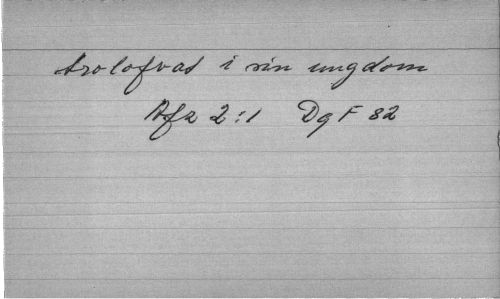 trolofvad i sin ungdom
Afz 2:1 DgF 82